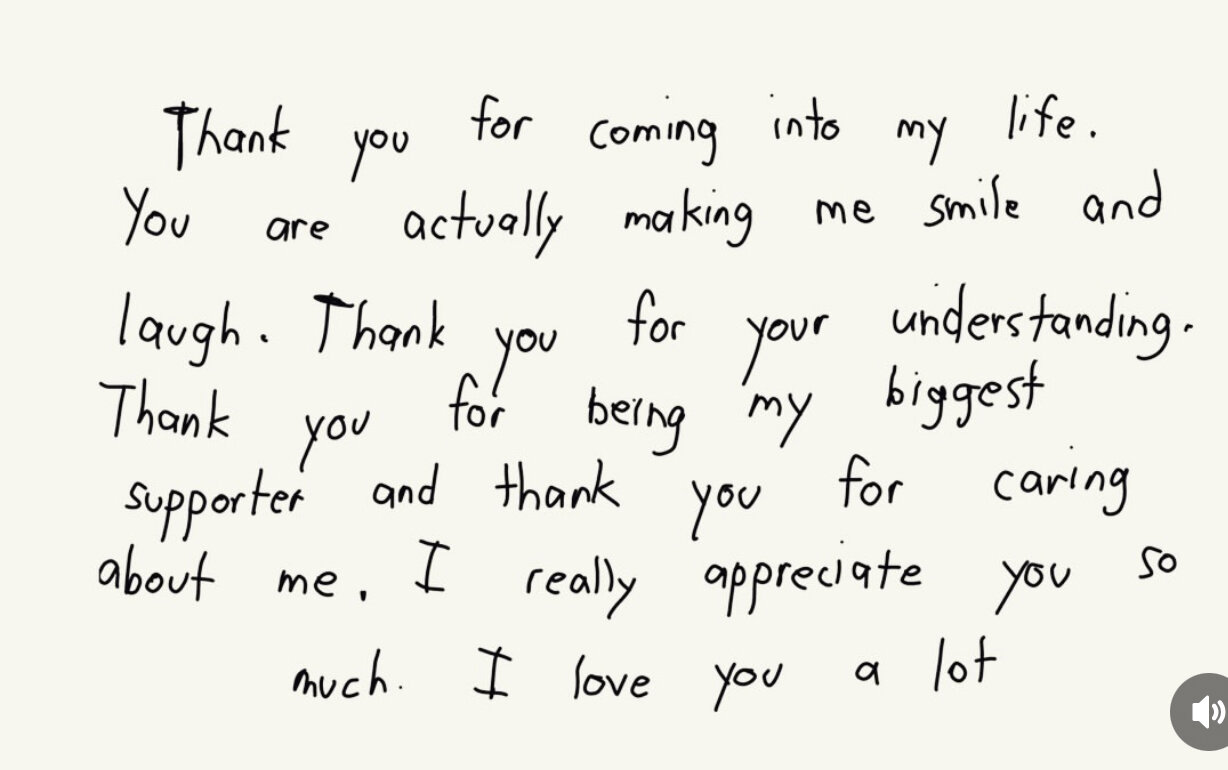 Thank you for coming into my life.
You are actually making me smile and
laugh. Thank you for your understanding.
Thank you for being my biggest
supporter and thank you for caring
about me. I really appreciate you so
much. I love you a lot